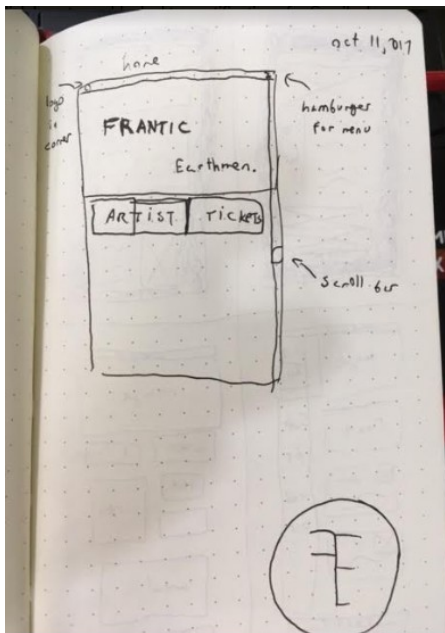 oct 11, 017
home
logo
in
corner
hamburger
for menu
FRANTIC
Earthmen.
ARTIST
TICKETS
scroll bar